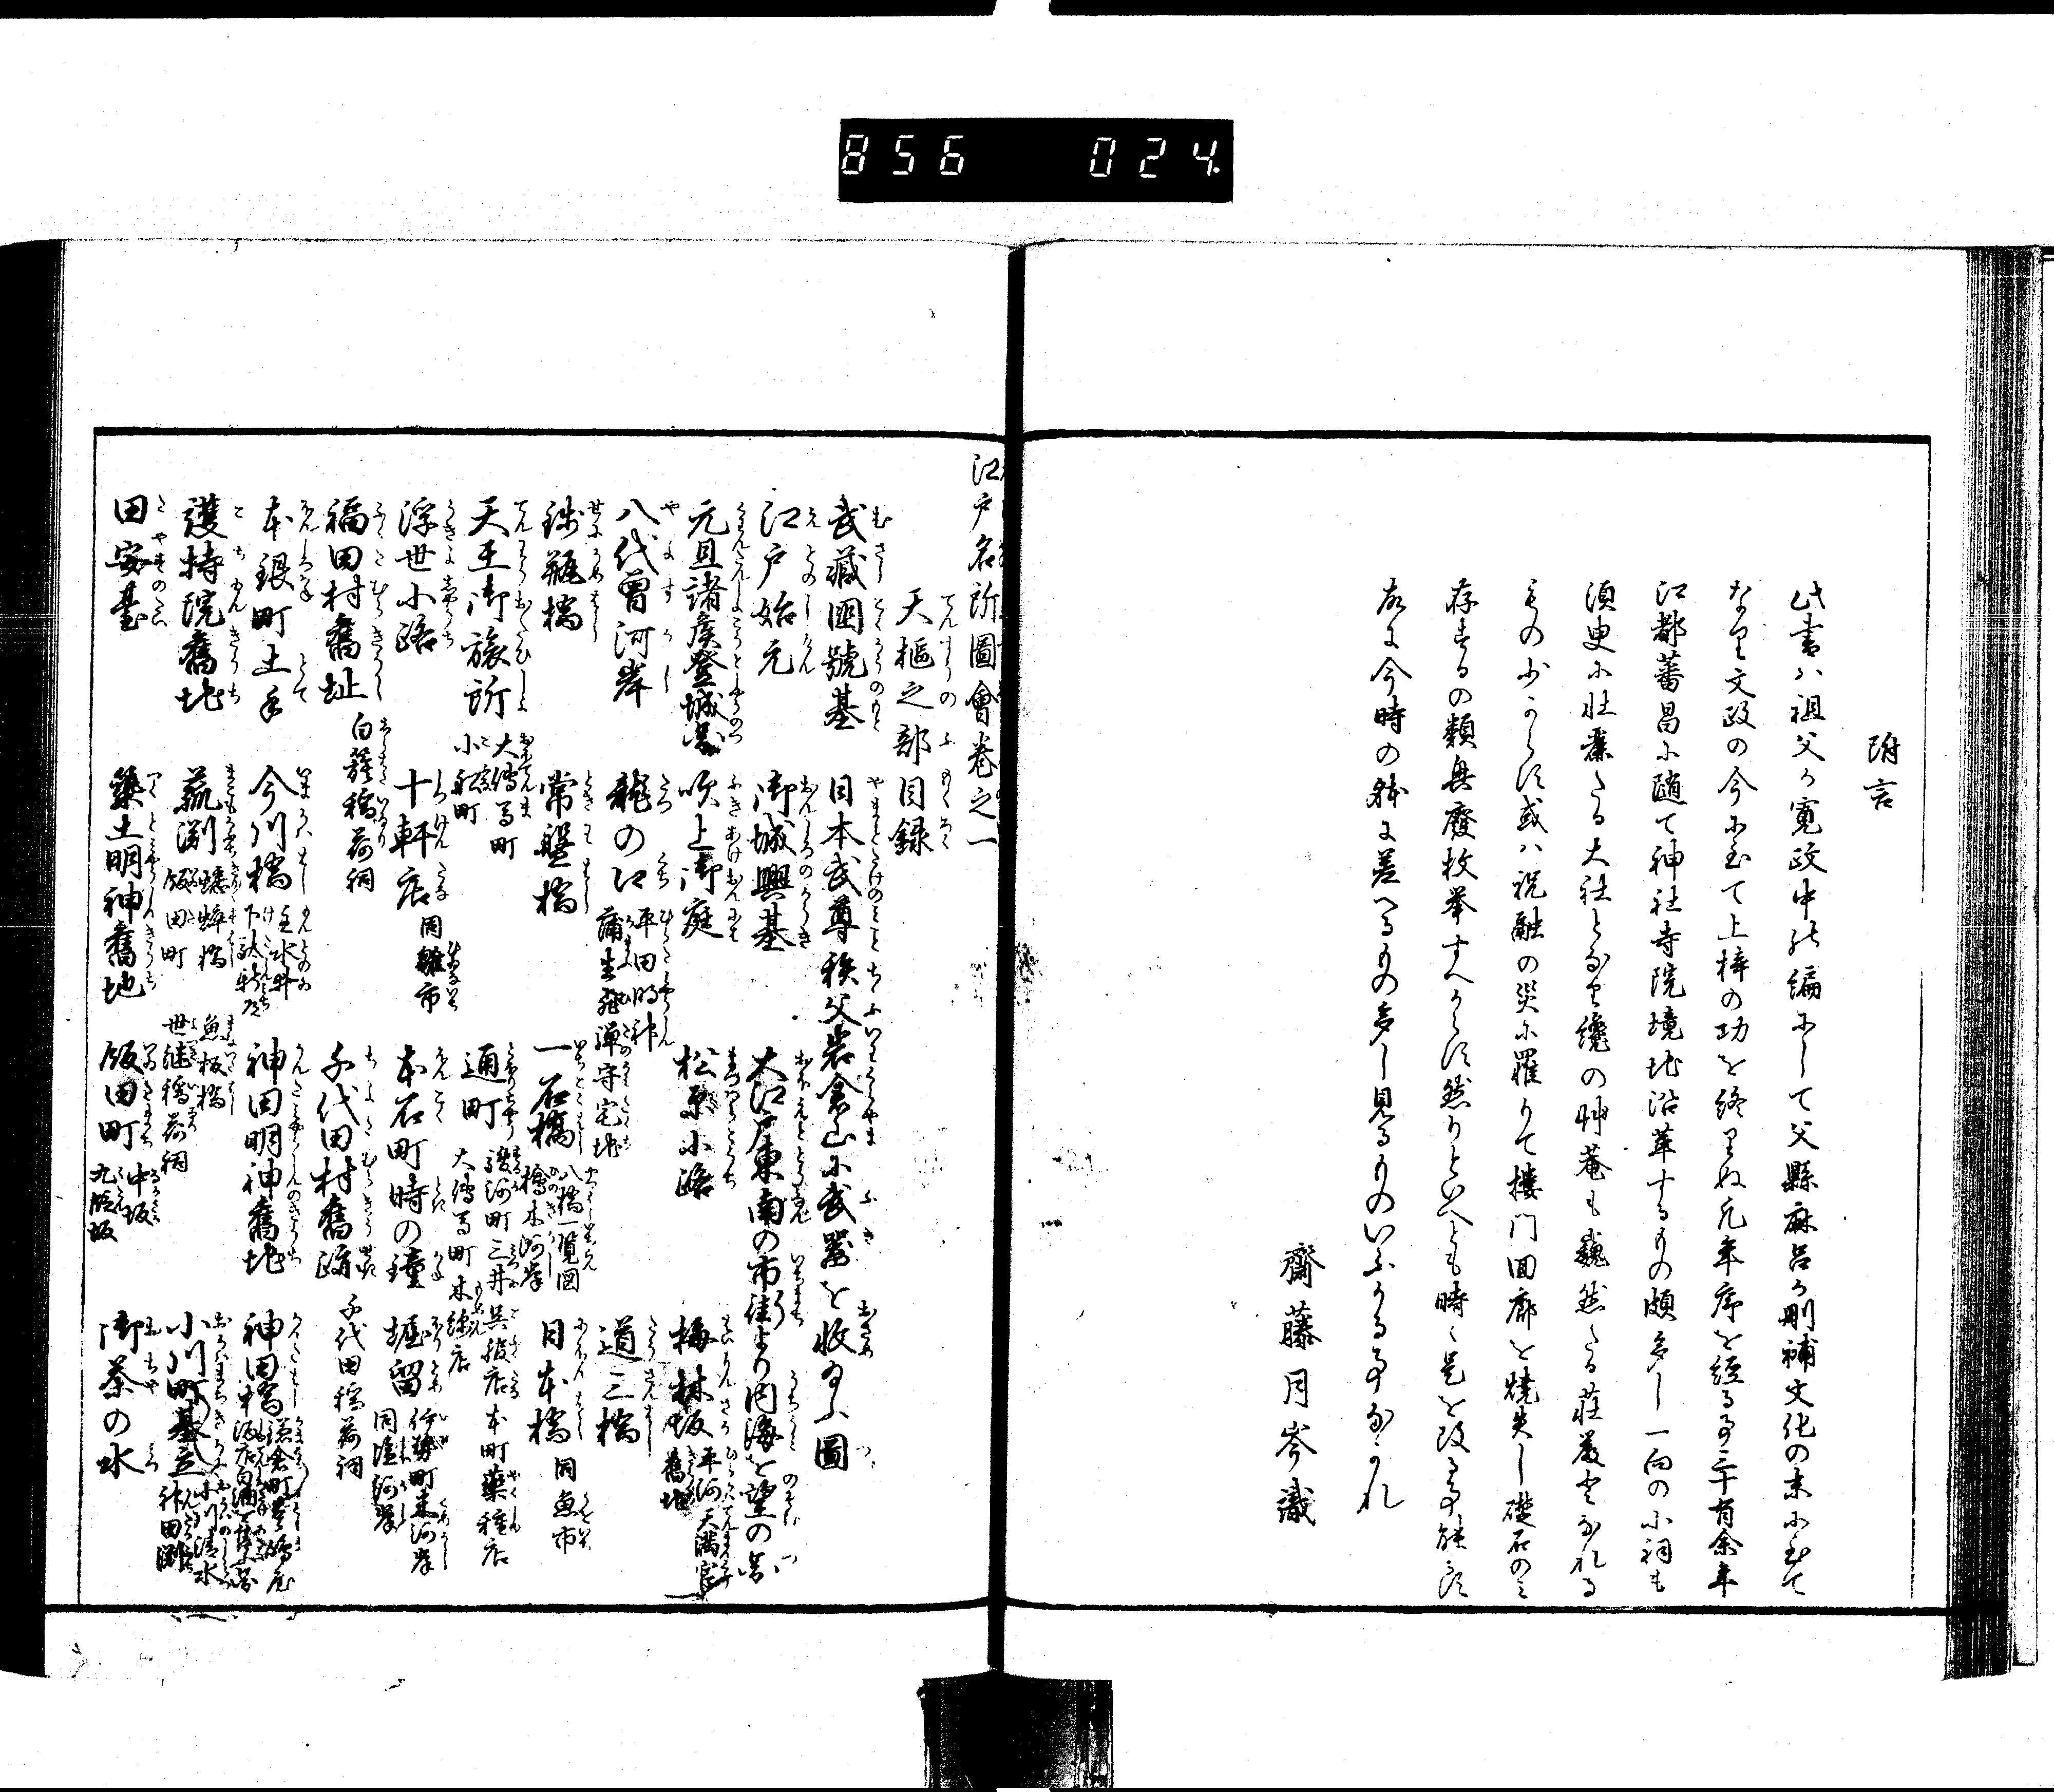 856 024
附言
此書ハ祖父か寛政中の編にして父縣麻呂か刪補文化の末に至て
なり文政の今に至て上梓の功を終りぬ凡年序を經る事三十有余年
江都蕃昌に随て神社寺院境地沿革するもの頗多し一向の小祠も
須臾に壮麗たる大社となり纔の艸菴も巍然たる荘嚴となれる
もの少からす或ハ祝融の災に罹りて樓門回廊を燒失し礎石のミ
存するの類興廢枚挙すへからす然りといへとも時々是を改る事能ハす
故に今時の躰に差へるもの多し見るものいふかる事なかれ
齋藤月岑識
江戸名所圖會巻之一
天樞之部目録
武藏國號基 日本武尊秩父岩倉山に武器を收給ふ圖
江戸始元 御城興基 大江戸東南の市街より内海を望の圖
元旦諸侯登城圖 吹上御庭 松原小路 梅林坂 平河天満宮舊地
八代曽河岸 龍の口 平田明神 蒲生飛彈守宅地 道三橋
錢瓶橋 常盤橋 一石橋 八橋一覧図 檜木河岸 日本橋 同魚市
天王御旅所 大傳馬町 小舩町 通町 駿河町三井呉服店 大傳馬町木綿店 本町藥種店
浮世小路 十軒店 同雛市 本石町時の鐘 堀留 伊勢町米河岸 同塩河岸
福田村舊址 白籏稲荷祠 千代田村舊跡 千代田稲荷祠
本銀町土手 今川橋 主水井 下駄新道 神田明神舊地 神田橋 鎌倉町豊嶋屋酒店白酒
護持院舊地 蟋蟀橋 飯田町 魚板橋 世継稲荷祠 小川町基立 小川清水 神田
田安臺 築土明神舊地 飯田町 中坂 九段坂 御茶の水